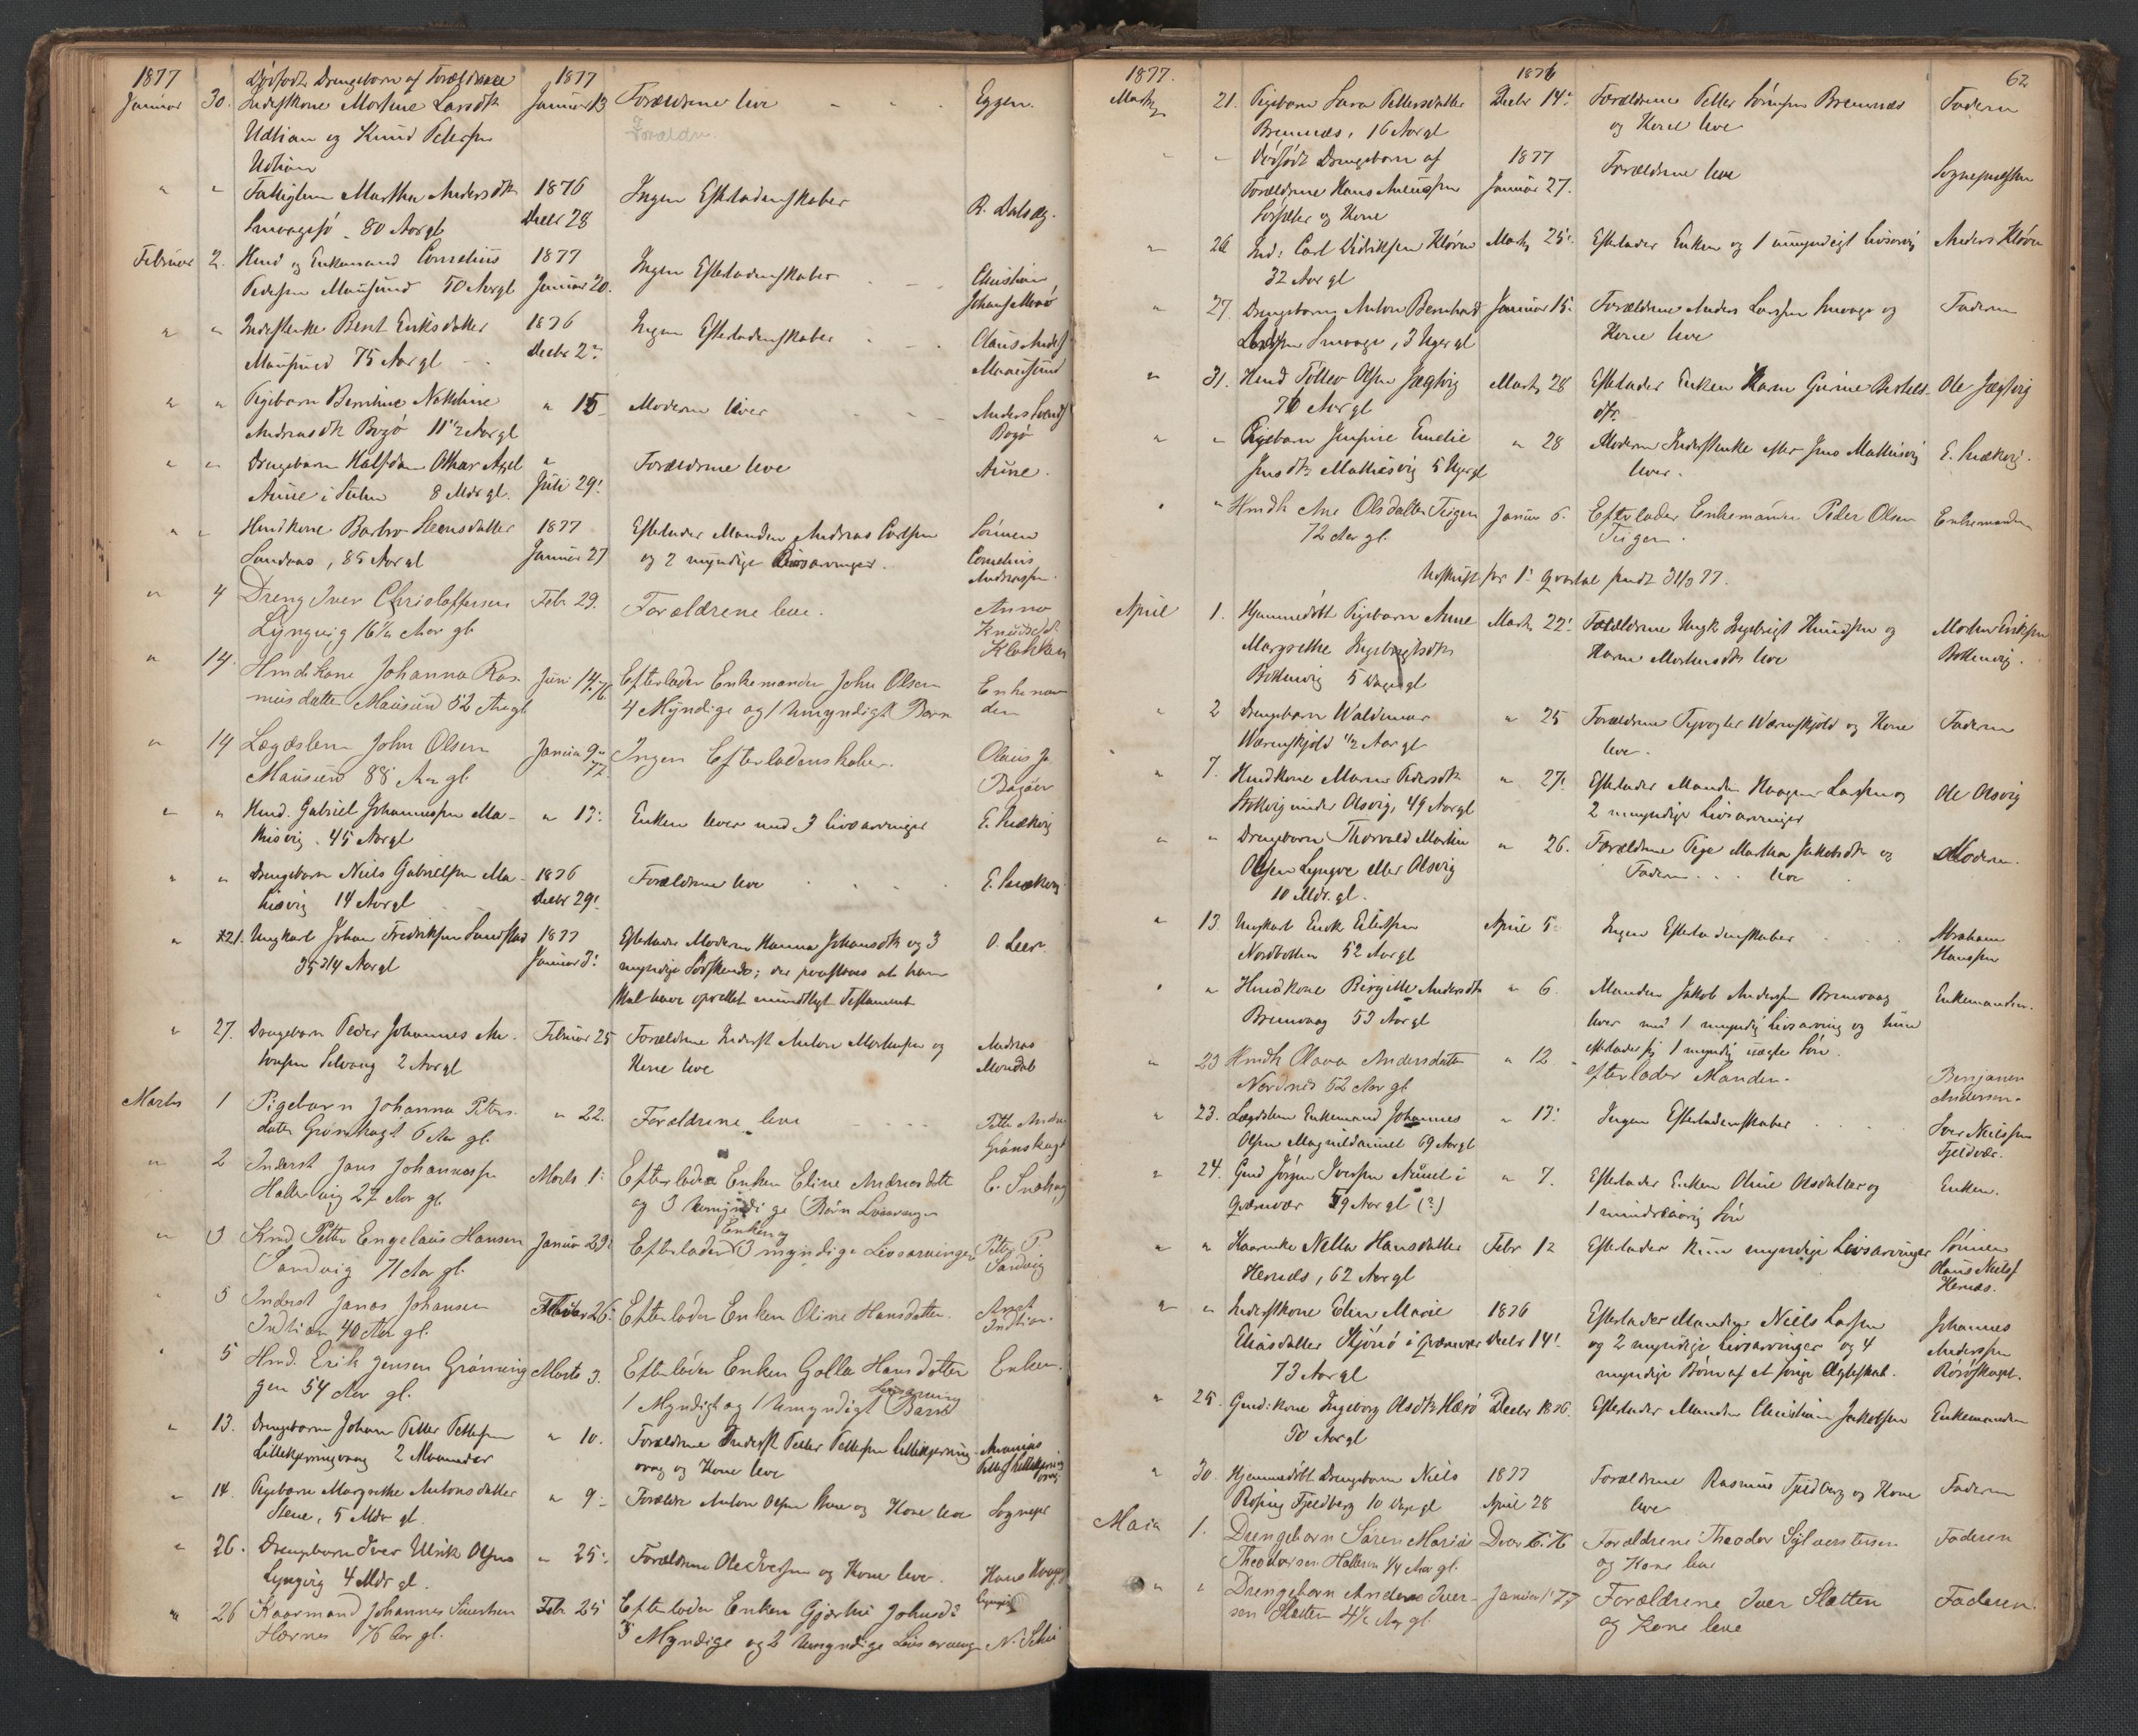 1877 Dødfødt Drengebarn af Forældrene 1877
Januar 30. Inderstkone Martine Larsdtr Januar 13 Forældrene leve Eggen.
Udtian og Knud Petersen Forældr.
Udtian
" " Fattiglem Martha Andersdtr 1876 Ingen Efterladenskaber
Smaagesø 80 Aar gl Decbr 28 R. Dalsæg.
Februar 2. Hmd og Enkemand Cornelius 1877 Ingen Efterladenskaber Christian
Pedersen Mausund 50 Aar gl Januar 20. Johans
" " Inderstenke Berit Eriksdatter 1876 Ingen Efterladenskaber Olaus Anders
Mausund 75 Aar gl Decbr 2den Mausund
" " Pigebarn Bernhine Nekoline " 15 Moderen lever Anders
Andreasdtr Bogø 11 1/2 Aar gl Bogø
" " Drengebarn Halfdan Othar Axel " Forældrene leve Aune.
Aune i 8 Mdr gl. Juli 29.
" " Hmdkone Barbro Steensdatter 1877 Efterlader Manden Andreas Carlsen Sønnen
Sandnas, 85 Aar gl Januar 27 og 2 myndige Livsarvinger. Cornelius
Andreassen
" 4 Dreng Iver Christoffersen Feb. 29. Forældrene leve. Anna
Lyngvig 16 1/2 Aar gl. Knudsdtr
Klakken
" 14. Hmdskone Johanna Ras- Juni 14. 76 Efterlader Enkemanden John Olsen Enkeman-
musdatter Mausund 52 Aar gl 4 Myndige og 1 Umyndigt Barn den
" 14 Lægdslem John Olsen Januar 9 77. Ingen Efterladenskaber. Olaus Jo.
Mausund 88 Aar gl. Bogøen
" " Hmd. Gabriel Johannessen Ma- " 13. Enken lever med 3 Livsarvinger E. Snekvig
thisvig. 45 Aar gl
" " Drengebarn Niels Gabrielsen Ma- 1876 Forældrene leve E. Snekvig
thisvig 14 Aar gl Decbr 29.
" 21. Ungkarl Johan Fredriksen Sundstad 1877 Efterlader Moderen Hanna Johansdtr og 3 O. Leer
35 3/4 Aar gl Januar 3. myndige Sødskende; der paastaaes at han
skal have oprettet mundtligt Testament
" 27. Drengebarn Peder Johannes An- Februar 25 Forældrene Inderst Anton Mortensen og Andreas
tonsen Selvaag 2 Aar gl Kone leve
Marts 1 Pigebarn Johanna Peters- " 22. Forældrene leve Petter Andr
datter Grønskagt 6 Aar gl. Grønskagt
" 2 Inderst Jans Johannessen Marts 1. Efterlader Enken Eline Andreasdatter E. Snekvig
Hallarvig 27 Aar gl. og 3 Umyndige Børn Livsarvinger
" 3 Kmd Petter Engelaus Hansen Januar 29. Efterlader Enken og 3 myndige Livsarvinger Petter P
Sandvig 71 Aar gl. Sandvig
" 5 Inderst Janas Johansen Februar 26. Efterlader Enken Oline Hansdatter. Arnt
Indtian 40 Aar gl. Indtian.
" 5 Hmd. Erik Jensen Grønning- Marts 3. Efterlader Enken Golla Hansdatter Enken.
gen 54 Aar gl. 1 Myndigt og 1 Umyndigt Barn Livsarving
" 13. Drengebarn Johan Petter Pettersen " 10. Forældrene Inderst Petter Pettersen Lillekjerring-
Lillekjerringvaag 2 Maaneder vaag og Kone leve
" 14. Pigebarn Margrethe Antonsdatter " 9. Forældre Anton Olsen Stene og Kone leve Sognepr
Stene, 5 Mdr gl.
" 26. Drengebarn Iver Ulrik Olsen " 25. Forældrene Ole Iversen og Kone leve. Hans
Lyngvig 4 Mdr gl. Lyngvig
" 26 Kaarmand Johannes Sivertsen Feb. 25 Efterlader Enken Gjertru Johnsdtr
Hernes 76 Aar gl. 5 Myndige og 2 Umyndige Livsarving N. Selnes
1877. 1876 62
Marts 21. Pigebarn Sara Pettersdatter Decbr 14. Forældrene Petter Sørensen Bremnæs Faderen
Bremnæs, 16 Aar gl og Kone leve
" " Dødfødt Drengebarn af 1877 Forældrene leve Sognepræsten
Forældrene Hans Antonsen Januar 27.
og Kone
" 26 Ind: Carl Didriksen Kløven Marts 25. Efterlader Enken og 1 umyndigt Livsarving Anders Kløven
32 Aar gl
" 27. Drengebarn Anton Bernhard Januar 15. Forældrene Anders Larsen Smaage og Faderen
Larsen Smaage, 3 Uger gl Kone leve
" 31. Hmd Tollev Olsen Jægtvig Marts 28 Efterlader Enken Karen Gurine Bertels- Ole Jægtvig
70 Aar gl dtr.
" " Pigebarn Jensine Emelie " 28 Moderen Inderstenke efter Jens Mathisvig E. Snekvig.
Jensdtr Mathisvig 5 Uger gl lever.
" " Hmdk Ane Olsdatter Teigen Januar 6. Efterlader Enkemanden Peder Olsen Enkemanden
72 Aar gl. Teigen.
Udskrift for 1. Qvartal sendt 31/3 77.
April 1. Hjemmedøbt Pigebarn Anne Marts 22. Forældrene Ungk Ingebrigt Knudsen og Morten Eriksen
Margrethe Ingebrigtsdtr Karen Mortensdtr leve Bottenvig.
Bottenvig 5 Dage gl
" 2 Drengebarn Waldemar " 25 Forældrene Fyrvogter Wærnskjold og Kone Faderen
Wærenskjold 1/2 Aar gl leve.
" 7. Hmdkone Maren Pedersdtr " 27. Efterlader Manden Haagen Larsen og Ole Olsvig
Stokvig under Olsvig, 49 Aar gl 2 umyndige Livsarvinger
" " Drengebarn Thorvald Martin " 26. Forældrene Pige Martha Jakobsdtr og Moderen.
Olsen Lyngve eller Olsvig Faderen . . . leve
10 Mdr. gl.
" 13. Ungkarl Enok Eilertsen April 5. Ingen Efterladenskaber Abraham
Nordbotten 52 Aar gl Hanssen
" " Hmdkone Birgitte Andersdtr " 6. Manden Jakob Andersen Bremvaag Enkemanden.
Bremvaag 53 Aar gl lever med 1 umyndig Livsarving og hun
efterlader sig 1 myndig uægte Søn.
" 23 Hmdk Olava Andersdatter " 12. efterlader Manden. Benjamin
Nordnes 52 Aar gl Andersen.
" 23. Lægdslem Enkemand Johannes " 13. Ingen Efterladenskaber Iver Nielssen
Olsen 69 Aar gl Fjeldvær.
" 24. Gmd Jørgen Iversen Aunet i " 7. Efterlader Enken Oline Olsdatter og Enken.
Qvænvær 59 Aar gl (?) 1 mindreaarig Søn
" " Kaarenke Nella Hansdatter Febr 12 Efterlader kun myndige Livsarvinger Sønnen
Hernæs, 62 Aar gl Hans Nielss
Hernæs.
" " Inderstkone Elen Marie 1876 Efterlader Manden Niels Larsen Johannes
Eliasdatter Stjørnø i Qvænvær Decbr 14. og 2 myndige Livsarvinger og 4 Anderssen
73 Aar gl myndige Børn af et forrige Ægteskab.
" 25. Gmd:kone Ingeborg Olsdtr Hærø Decbr 1876. Efterlader Manden Christian Jakobsen Enkemanden
50 Aar gl
" 30. Hjemmedøbt Drengebarn Niels 1877 Forældrene Rasmus Fjeldberg og Kone Faderen
Fjeldberg 10 Dage gl April 28 leve
Maia 1. Drengebarn Søren Maria Forældrene Theodor Sylversten Faderen
Theodorsen Hallaren 1/4 Aar gl. og Kone leve
" " Drengebarn Anders Iver- Januar 1. 77 Forældrene Iver Sletten Faderen.
sen Sletten 4 1/2 Aar gl og Kone leve